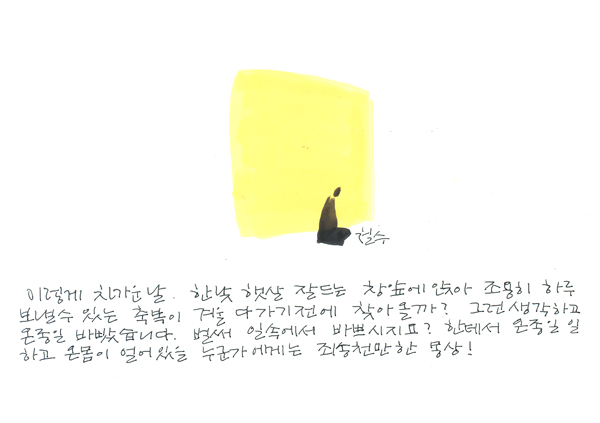 철수
이렇게 차가운날. 한낮 햇살 잘드는 창앞에 앉아 조용히 하루
보낼수 있는 축복이 겨울 다가기전에 찾아올까? 그런생각하고
온종일 바빴습니다. 벌써 일속에서 바쁘시지요? 한데서 온종일 일
하고 온몸이 얼어있을 누군가에게는 죄송천만한 몽상!